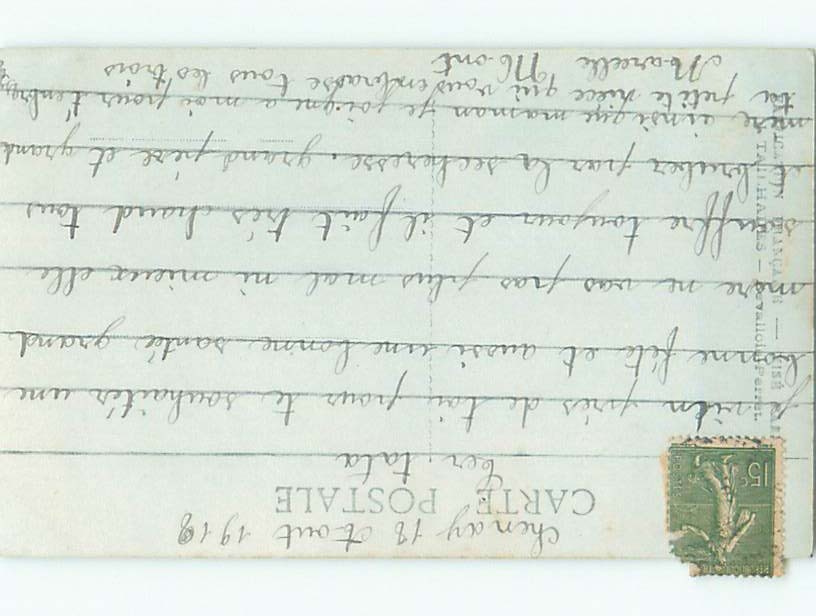 Chenay 18 Aout 1918
CARTE POSTALE
cer. tata
je vien près de toi pour te souhaiter une
bonne fête et aussi une bonne santée grand
mère ne vas pas plus mal ni mieux elle
souffre toujour et il fait très chaud tous
et bruler par la secheresse. grand père et grand
mère ainsi que maman se joigne a moi pour t'embrasser
ta petite nièce qui vous embrasse tous les trois
Marcelle Mont
15c
FABRICATION FRANÇAISE
TAILHADES — Levallois-Perret.